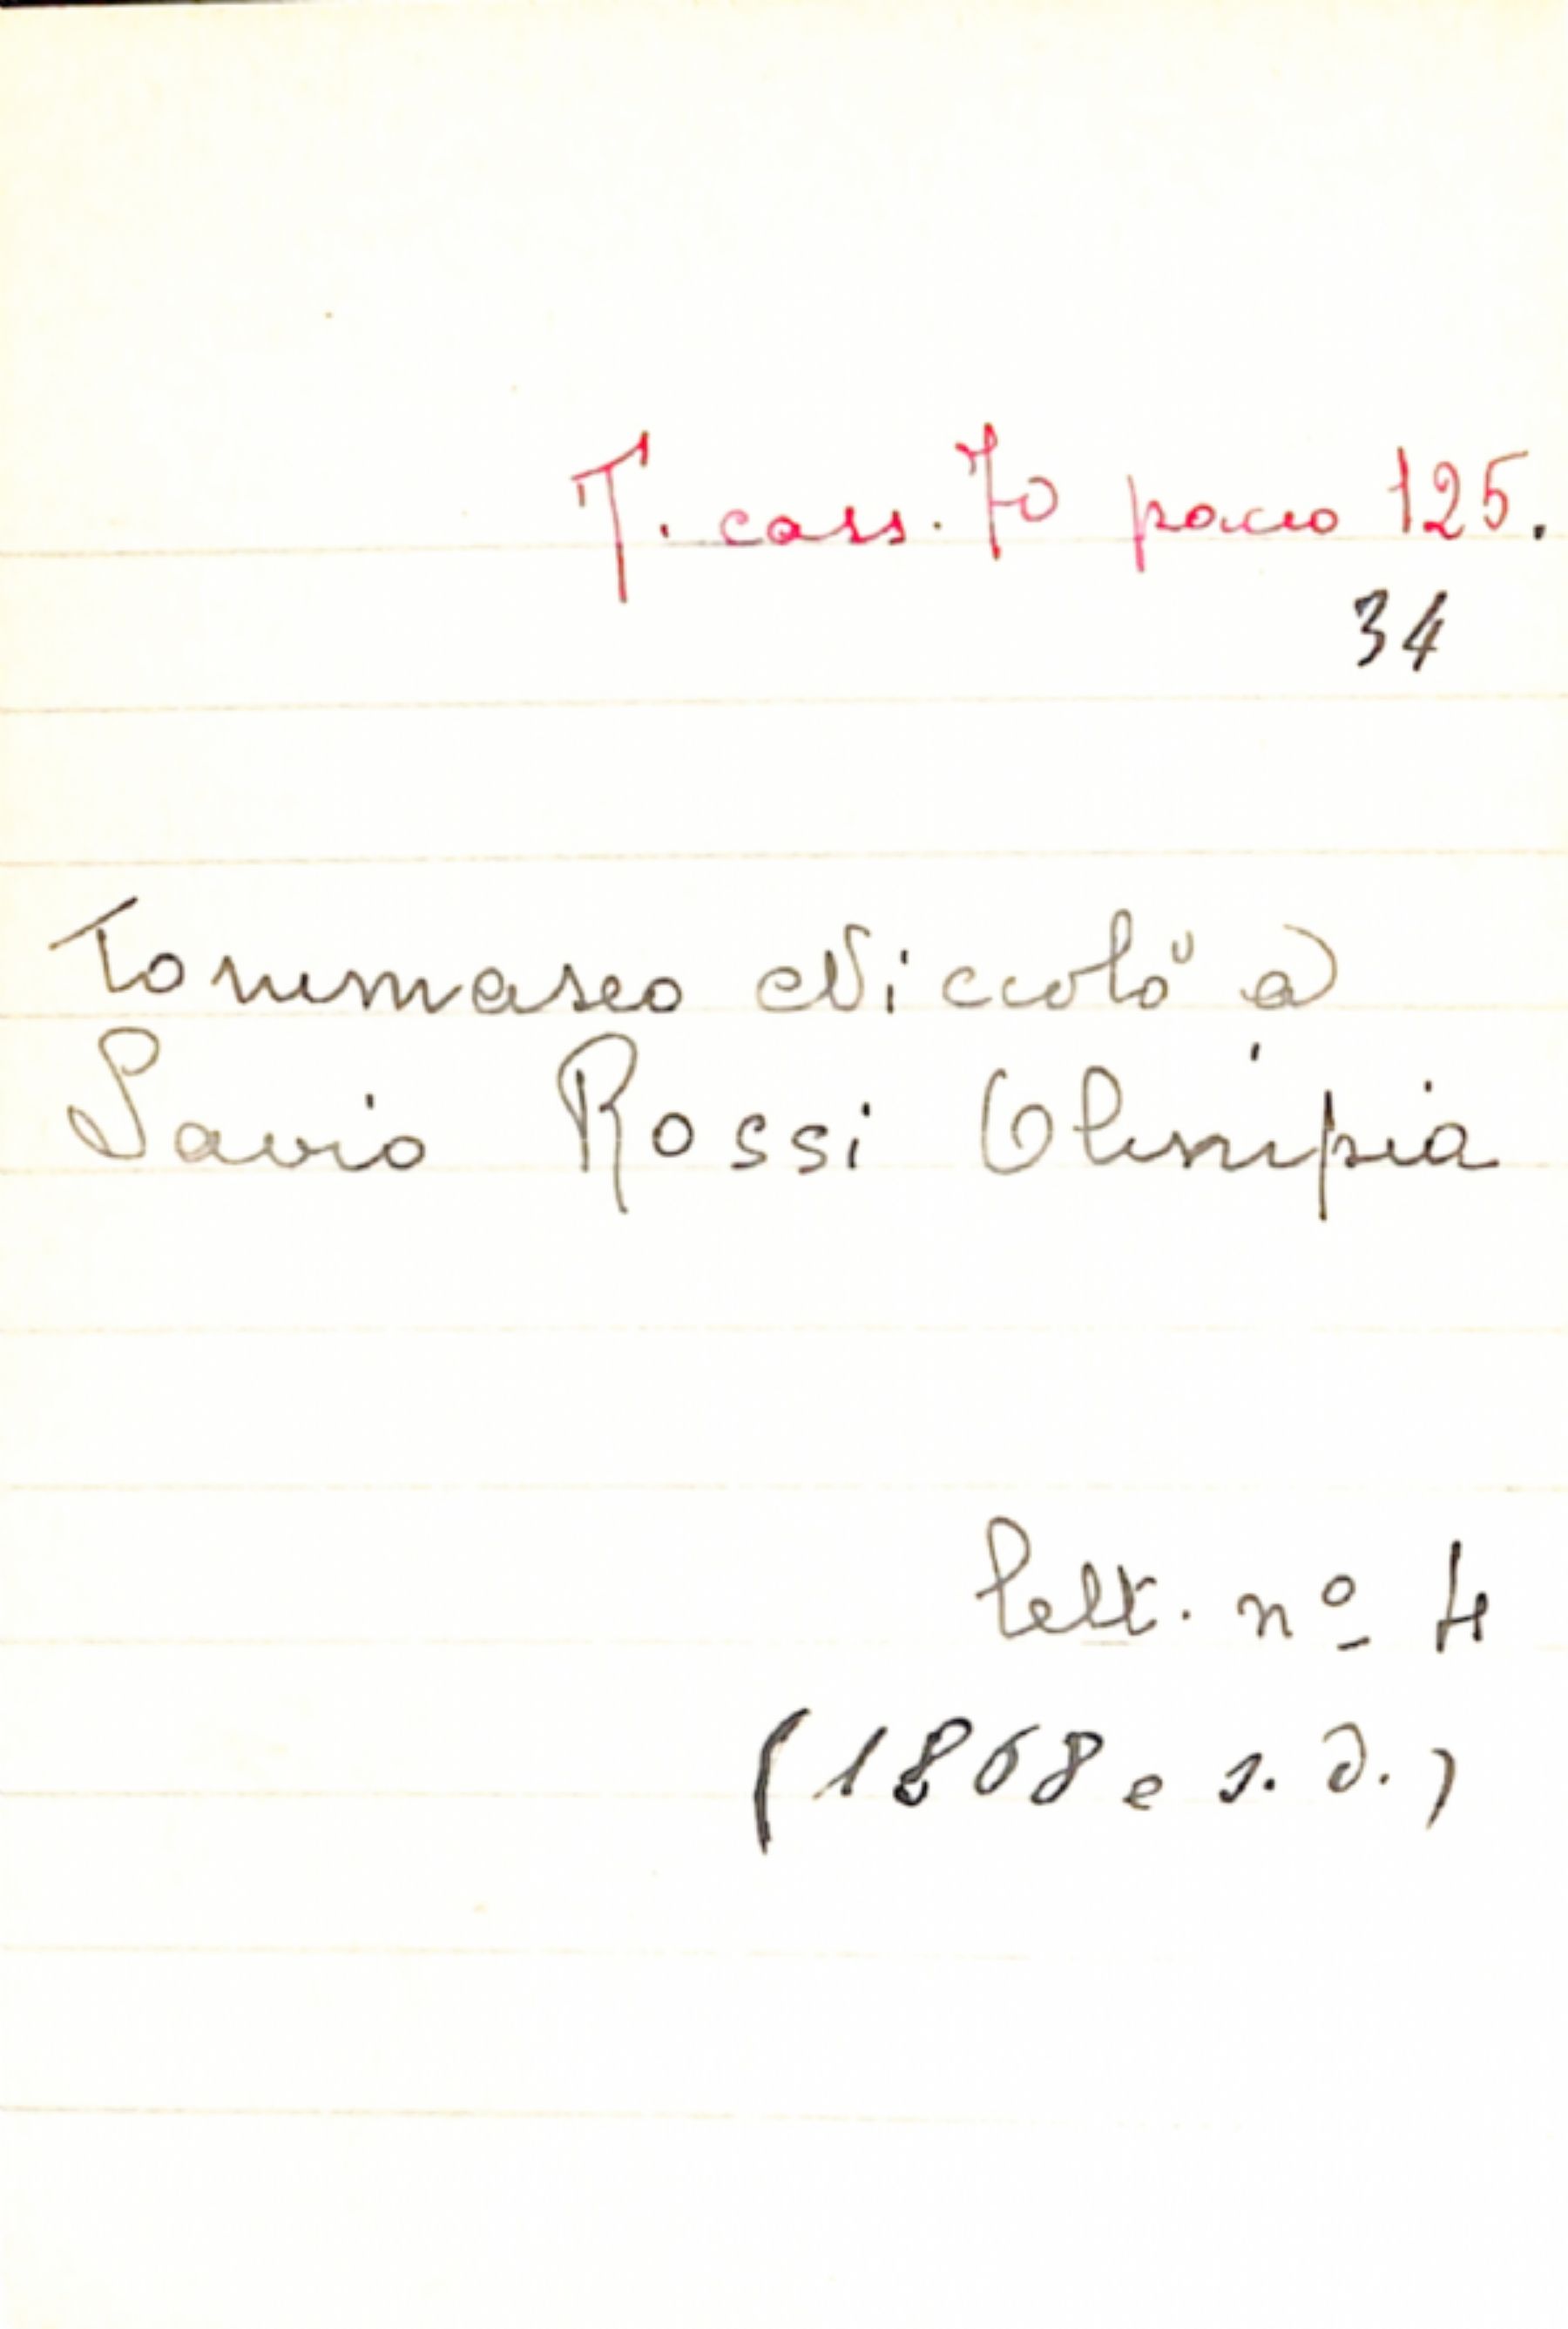 T. cass. 70 pacco 125.
34
Tommaseo Niccolò a
Savio Rossi Olimpia
lett. nº 4
(1868 e s. d.)